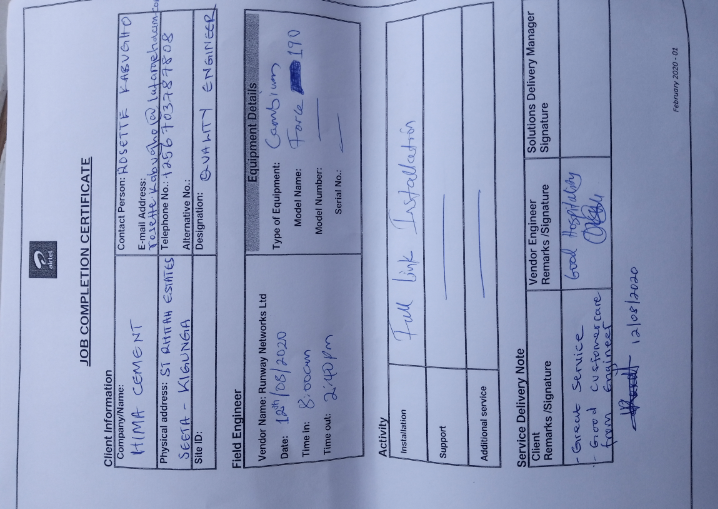 airtel
JOB COMPLETION CERTIFICATE
Client Information
Company/Name:
HIMA CEMENT
Physical address: ST RHITAH ESTATES
SEETA - KIGUNGA
Site ID:
Contact Person: ROSETTE KABUGHO
E-mail Address:
Telephone No.: +256703787808
Alternative No.:
Designation: QUALITY ENGINEER
Field Engineer
Vendor Name: Runway Networks Ltd
Date: 12th/08/2020
Time in: 8:00am
Time out: 2:40pm
Equipment Details
Type of Equipment: Cambium
Model Name: Force 190
Model Number:
Serial No.:
Activity
Installation Full Link Installation
Support
Additional service
Service Delivery Note
Client
Remarks /Signature
- Great Service
- Good customer care
from Engineer
12/08/2020
Vendor Engineer
Remarks /Signature
Good Hospitality
Solutions Delivery Manager
Signature
February 2020 - 01